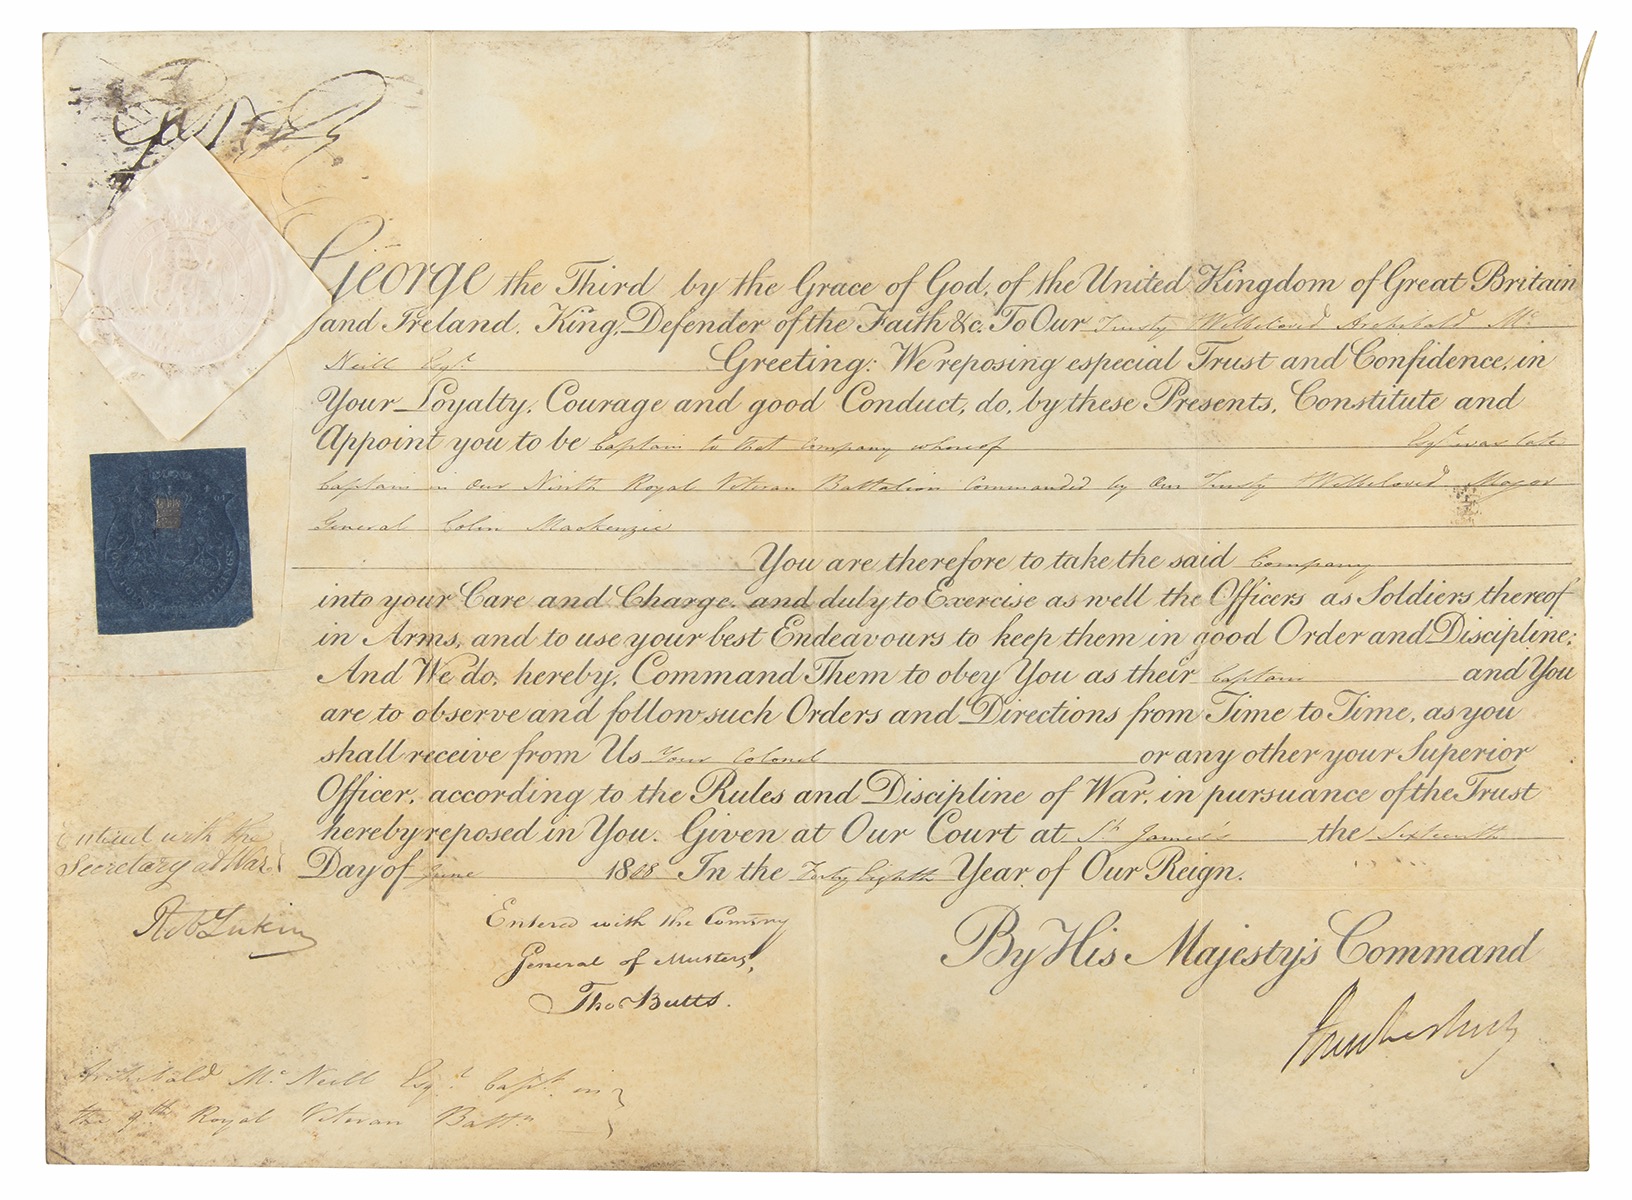 George R
George the Third by the Grace of God, of the United Kingdom of Great Britain
and Ireland, King, Defender of the Faith &c. To Our Trusty & Welbeloved Archibald Mc
Neill Esqr. Greeting: We reposing especial Trust and Confidence, in
Your Loyalty, Courage and good Conduct, do, by these Presents, Constitute and
Appoint you to be Captain to that Company whereof Esqr. was late
Captain in Our Ninth Royal Veteran Battalion Commanded by Our Trusty & Welbeloved Major
General Colin Mackenzie
You are therefore to take the said Company
into your Care and Charge, and duly to Exercise as well the Officers as Soldiers thereof
in Arms, and to use your best Endeavours to keep them in good Order and Discipline;
And We do, hereby, Command Them to obey You as their Captain and You
are to observe and follow such Orders and Directions from Time to Time, as you
shall receive from Us Your Colonel or any other your Superior
Officer, according to the Rules and Discipline of War, in pursuance of the Trust
hereby reposed in You. Given at Our Court at St. James's the Sixteenth
Day of June 1808 In the Forty Eighth Year of Our Reign.
By His Majesty's Command
Entered with the
Secretary at War
Rob Lukin
Entered with the Commry
General of Musters,
Tho Butts.
Archibald Mc Neill Esqr. Capt. in
the 9th Royal Veteran Battn